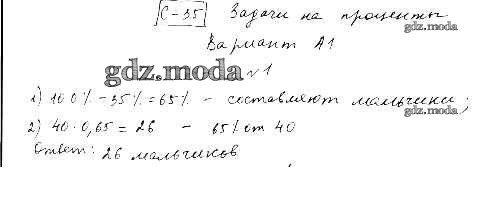 С-35 Задачи на проценты
gdz.moda
Вариант А1
gdz.moda №1
1) 100% - 35% = 65% - составляют мальчики;
gdz.moda
2) 40 · 0,65 = 26 - 65% от 40
Ответ: 26 мальчиков